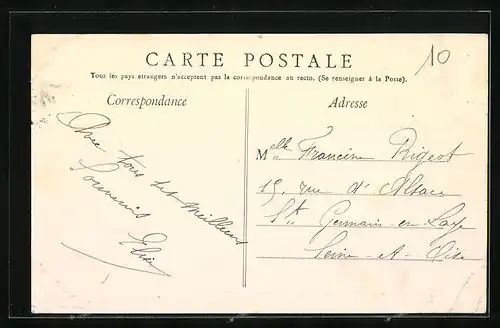 CARTE POSTALE
10
Tous les pays étrangers n'acceptent pas la correspondance au recto. (Se renseigner à la Poste).
Correspondance
Avec tous ses meilleurs
Souvenirs
Adresse
Melle Francine Rigeot
15, rue d'Alsace
St Germain-en-Laye
Seine-et-Oise